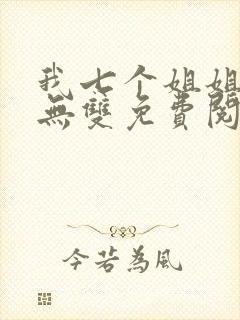 我七个姐姐
無雙免費閱
今若為風